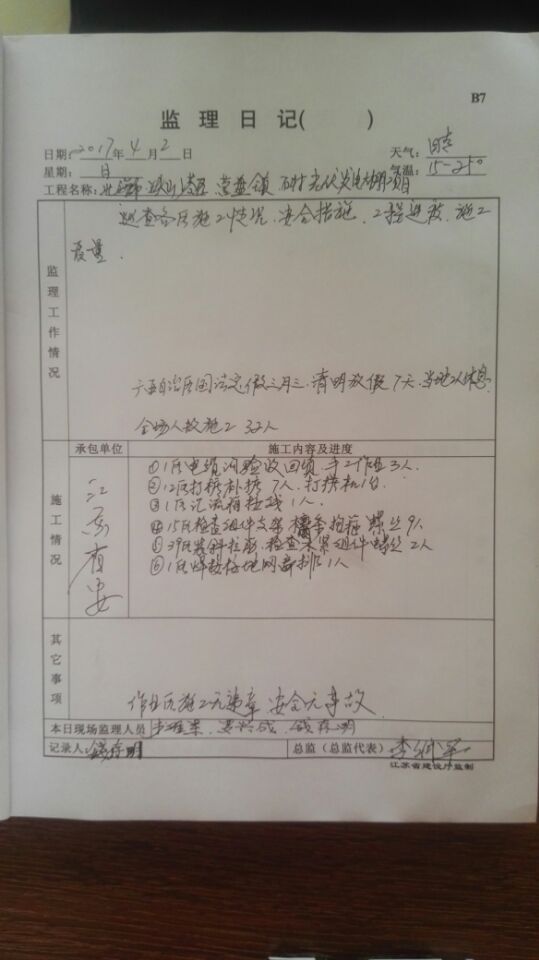 B7
监理日记( )
日期：2017年4月2日 天气：晴
星期：日 气温：15-25°
工程名称： 常盘镇 光伏发电 项目
监理工作情况
巡查各区施工情况、安全措施、工程进度、施工
质量．
自治区国法定假三月三、清明放假7天、当地工人休息
全场人数施工32人
承包单位 施工内容及进度
施工情况
①1区电缆沟验收回填 手工作业3人．
②12区打桩补桩7人．打桩机1台．
③1区汇流箱接线1人．
④15区检查组件支架 螺丝9人
⑤39区装斜拉 检查 组件螺丝2人
⑥1区焊接接地网 1人
其它事项
作业区施工无违章 安全无事故
本日现场监理人员
记录人：钱存明 总监（总监代表）
江苏省建设厅监制